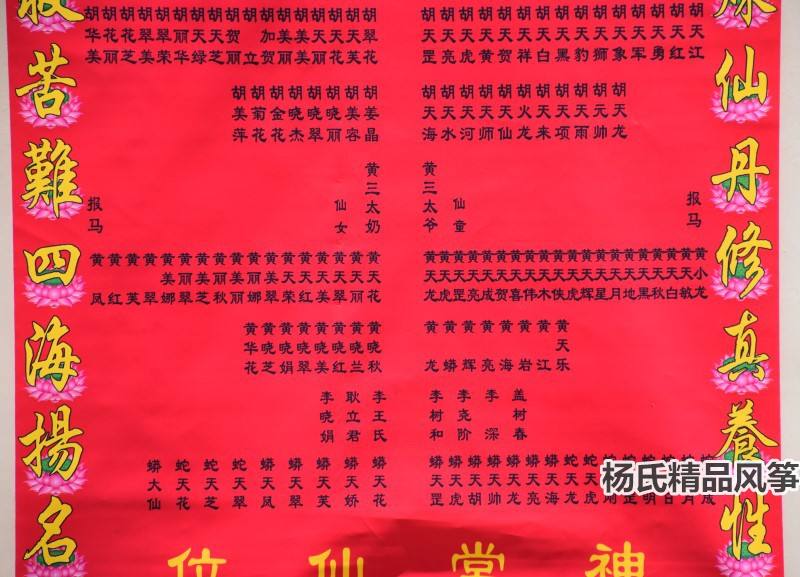 煉仙丹修真養性
救苦難四海揚名
胡天江
胡天红
胡天勇
胡天军
胡天象
胡天狮
胡天豹
胡天黑
胡天白
胡天祥
胡天贺
胡天黄
胡天虎
胡天亮
胡天罡
胡翠花
胡天芙
胡天花
胡天丽
胡美美
胡美丽
胡加贺
胡立
胡贺丽
胡天芝
胡天绿
胡丽华
胡翠荣
胡翠美
胡花翠
胡花丽
胡华美
胡天龙
胡元帅
胡天雨
胡天项
胡天来
胡火龙
胡天仙
胡天师
胡天河
胡天水
胡天海
胡姜晶
胡美容
胡晓丽
胡晓翠
胡晓杰
胡金花
胡菊花
胡美萍
报马
仙童
黄三太爷
黄三太奶
仙女
报马
黄小龙
黄天敏
黄天白
黄天秋
黄天黑
黄天地
黄天月
黄天星
黄天辉
黄天虎
黄天侠
黄天木
黄天伟
黄天喜
黄天贺
黄天成
黄天亮
黄天罡
黄天虎
黄天龙
黄天花
黄天丽
黄天芙
黄天美
黄天红
黄天荣
黄美翠
黄丽娜
黄美丽
黄丽秋
黄美芝
黄丽翠
黄美娜
黄翠
黄芙
黄红
黄凤
黄天乐
黄江
黄岩
黄海
黄亮
黄辉
黄蟒
黄龙
黄晓秋
黄晓兰
黄晓红
黄晓美
黄晓翠
黄晓娟
黄晓芝
黄华花
盖树春
李深
李尧阶
李树和
李王氏
耿立君
李晓娟
蟒天花
蟒天娇
蟒天芙
蟒天翠
蟒天凤
蛇天翠
蛇天芝
蛇天花
蟒大仙
神堂仙位
杨氏精品风筝